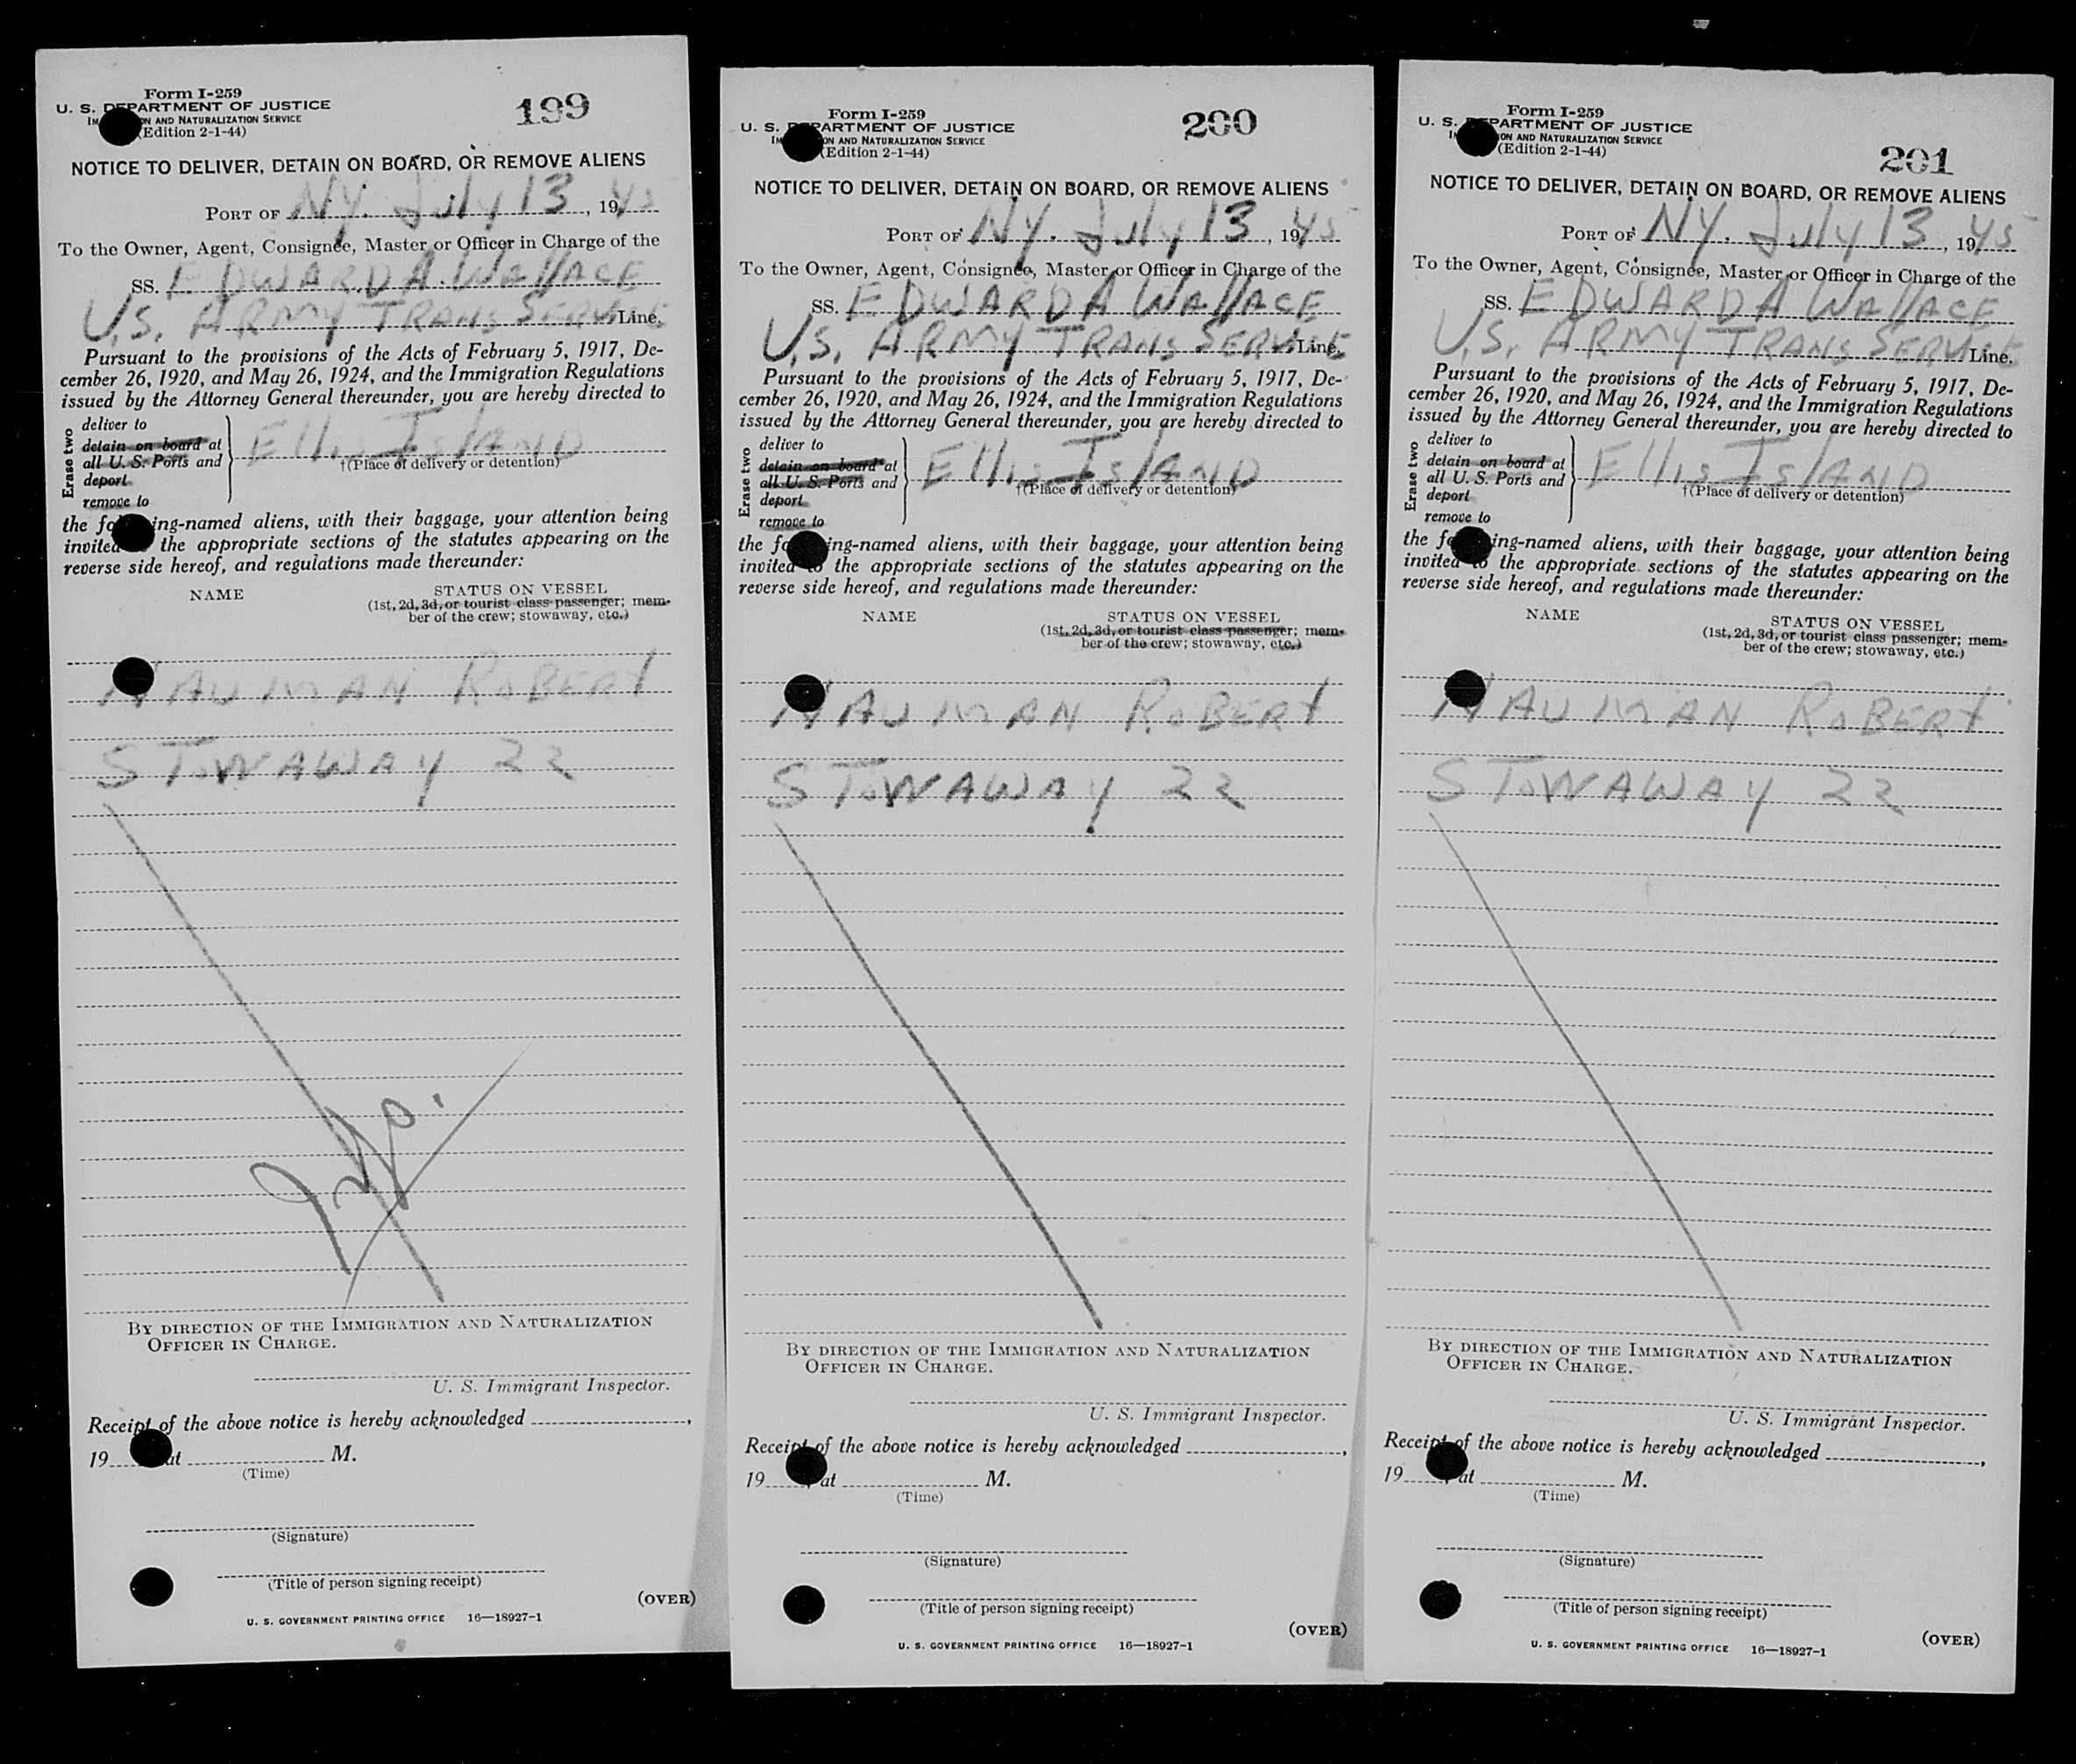 Form I-259
U. S. DEPARTMENT OF JUSTICE
ON AND NATURALIZATION SERVICE
(Edition 2-1-44)
199
NOTICE TO DELIVER, DETAIN ON BOARD, OR REMOVE ALIENS
PORT OF NY. July 13, 1945
To the Owner, Agent, Consignee, Master or Officer in Charge of the
SS. EDWARD A. WALLACE
U.S. ARMY TRANS SERVICE Line.
Pursuant to the provisions of the Acts of February 5, 1917, De-
cember 26, 1920, and May 26, 1924, and the Immigration Regulations
issued by the Attorney General thereunder, you are hereby directed to
Erase two
deliver to
detain on board at
all U. S. Ports and
deport
remove to
Ellis Island
†(Place of delivery or detention)
the following-named aliens, with their baggage, your attention being
invited to the appropriate sections of the statutes appearing on the
reverse side hereof, and regulations made thereunder:
NAME STATUS ON VESSEL
(1st, 2d, 3d, or tourist class passenger; mem-
ber of the crew; stowaway, etc.)
NAUMAN ROBERT
STOWAWAY 22
BY DIRECTION OF THE IMMIGRATION AND NATURALIZATION
OFFICER IN CHARGE.
U. S. Immigrant Inspector.
Receipt of the above notice is hereby acknowledged ,
19 at M.
(Time)
(Signature)
(Title of person signing receipt)
(OVER)
U. S. GOVERNMENT PRINTING OFFICE 16—18927-1
Form I-259
U. S. DEPARTMENT OF JUSTICE
ON AND NATURALIZATION SERVICE
(Edition 2-1-44)
200
NOTICE TO DELIVER, DETAIN ON BOARD, OR REMOVE ALIENS
PORT OF NY. July 13, 1945
To the Owner, Agent, Consignee, Master or Officer in Charge of the
SS. EDWARD A WALLACE
U.S. ARMY TRANS SERVICE Line.
Pursuant to the provisions of the Acts of February 5, 1917, De-
cember 26, 1920, and May 26, 1924, and the Immigration Regulations
issued by the Attorney General thereunder, you are hereby directed to
Erase two
deliver to
detain on board at
all U. S. Ports and
deport
remove to
Ellis Island
†(Place of delivery or detention)
the following-named aliens, with their baggage, your attention being
invited to the appropriate sections of the statutes appearing on the
reverse side hereof, and regulations made thereunder:
NAME STATUS ON VESSEL
(1st, 2d, 3d, or tourist class passenger; mem-
ber of the crew; stowaway, etc.)
NAUMAN ROBERT
STOWAWAY 22
BY DIRECTION OF THE IMMIGRATION AND NATURALIZATION
OFFICER IN CHARGE.
U. S. Immigrant Inspector.
Receipt of the above notice is hereby acknowledged ,
19 , at M.
(Time)
(Signature)
(Title of person signing receipt)
(OVER)
U. S. GOVERNMENT PRINTING OFFICE 16—18927-1
Form I-259
U. S. DEPARTMENT OF JUSTICE
ON AND NATURALIZATION SERVICE
(Edition 2-1-44)
201
NOTICE TO DELIVER, DETAIN ON BOARD, OR REMOVE ALIENS
PORT OF NY. July 13, 1945
To the Owner, Agent, Consignee, Master or Officer in Charge of the
SS. EDWARD A WALLACE
U.S. ARMY TRANS SERVICE Line.
Pursuant to the provisions of the Acts of February 5, 1917, De-
cember 26, 1920, and May 26, 1924, and the Immigration Regulations
issued by the Attorney General thereunder, you are hereby directed to
Erase two
deliver to
detain on board at
all U. S. Ports and
deport
remove to
Ellis Island
†(Place of delivery or detention)
the following-named aliens, with their baggage, your attention being
invited to the appropriate sections of the statutes appearing on the
reverse side hereof, and regulations made thereunder:
NAME STATUS ON VESSEL
(1st, 2d, 3d, or tourist class passenger; mem-
ber of the crew; stowaway, etc.)
NAUMAN ROBERT
STOWAWAY 22
BY DIRECTION OF THE IMMIGRATION AND NATURALIZATION
OFFICER IN CHARGE.
U. S. Immigrant Inspector.
Receipt of the above notice is hereby acknowledged ,
19 , at M.
(Time)
(Signature)
(Title of person signing receipt)
(OVER)
U. S. GOVERNMENT PRINTING OFFICE 16—18927-1